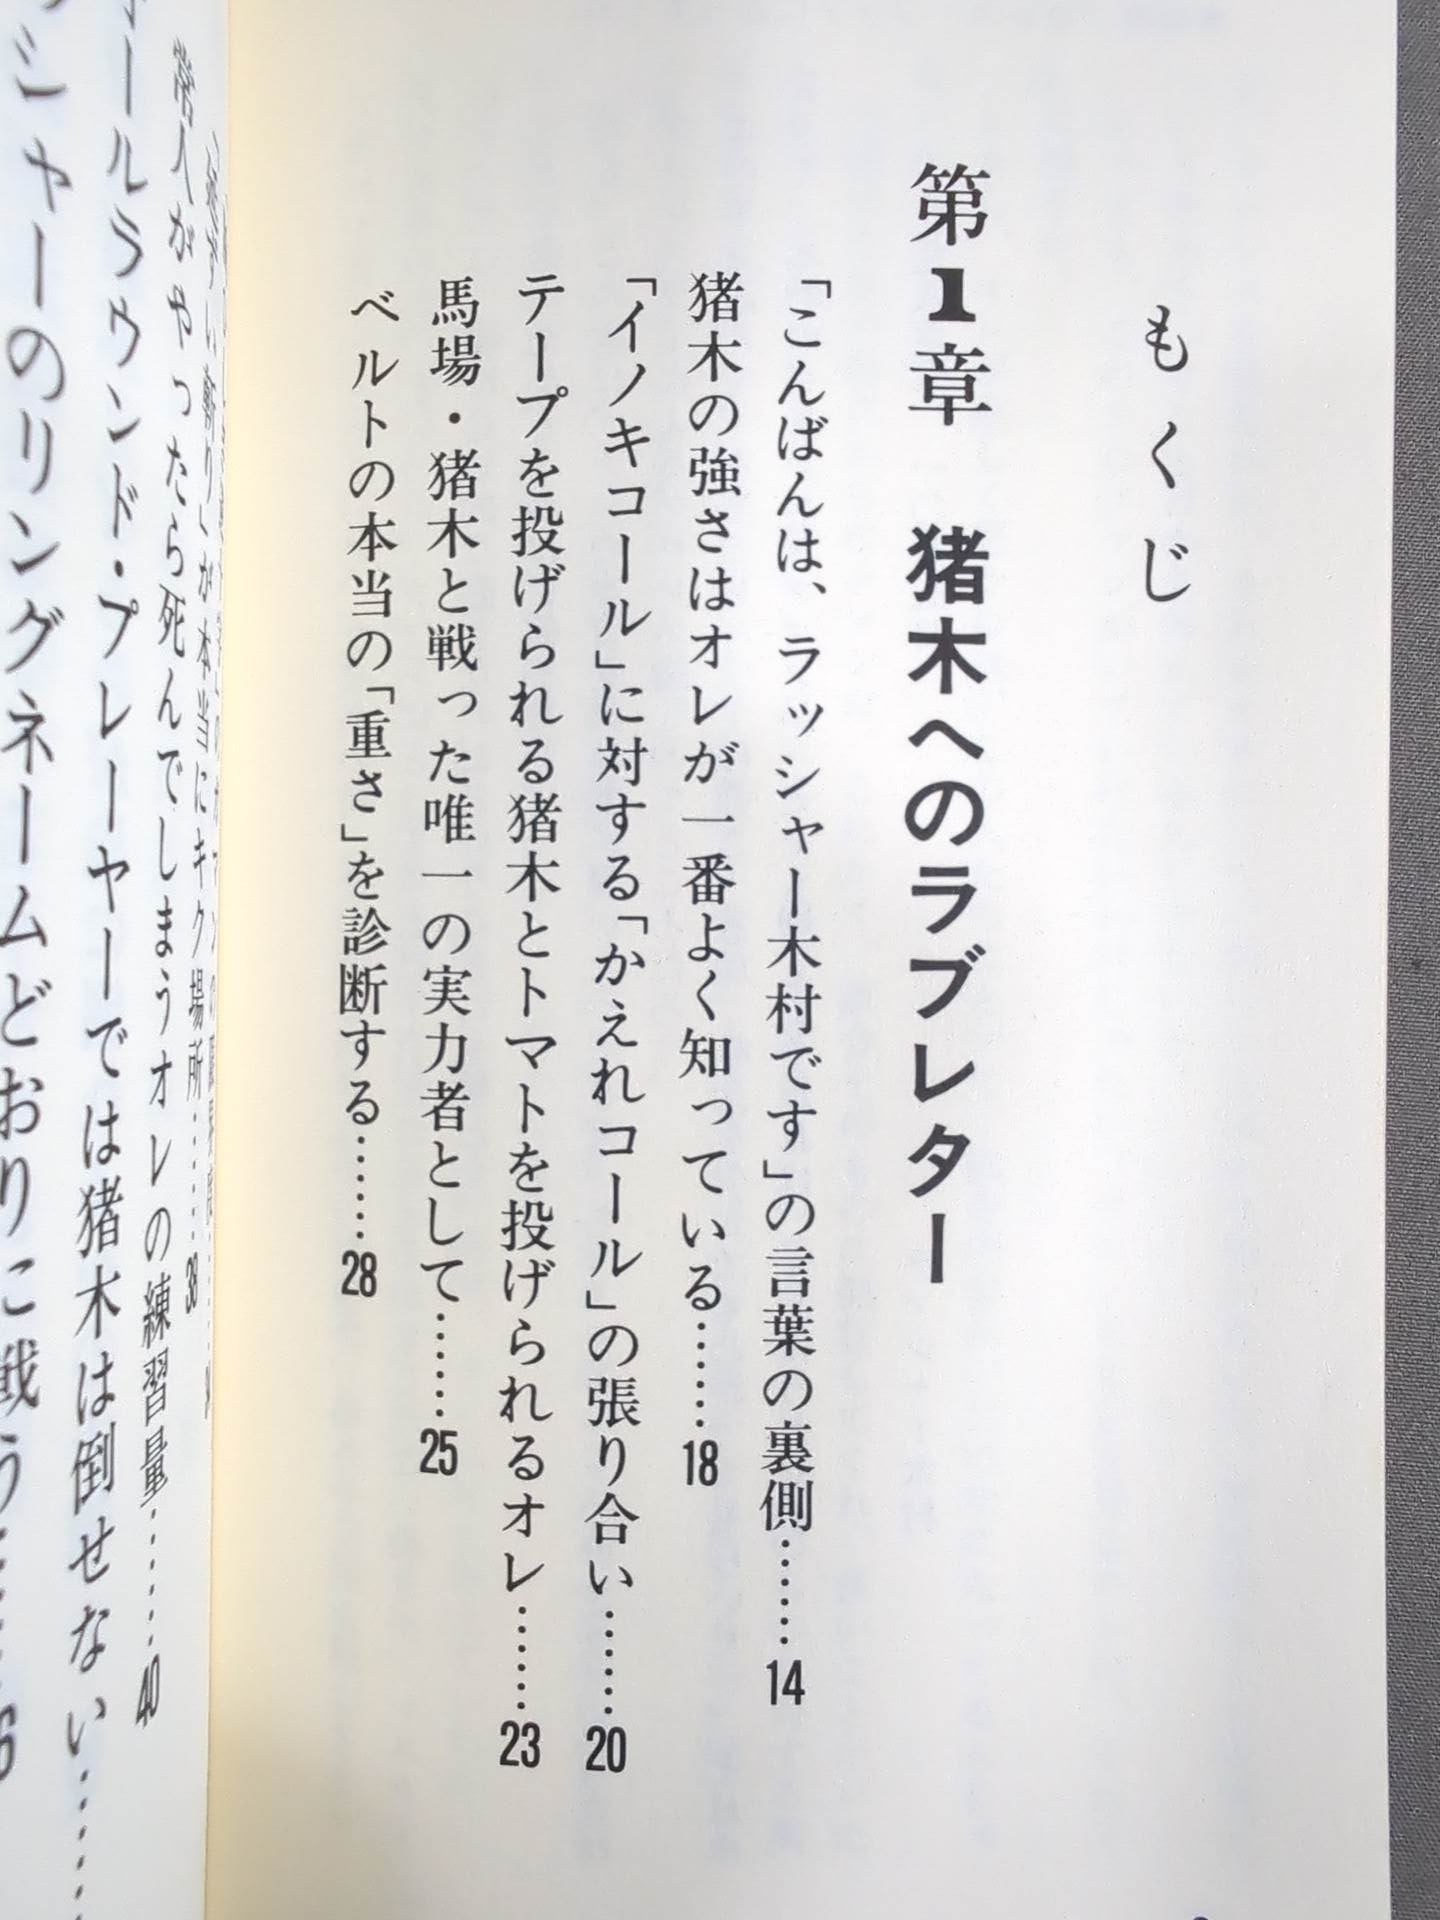 もくじ
第1章 猪木へのラブレター
「こんばんは、ラッシャー木村です」の言葉の裏側……14
猪木の強さはオレが一番よく知っている……18
「イノキコール」に対する「かえれコール」の張り合い……20
テープを投げられる猪木とトマトを投げられるオレ……23
馬場・猪木と戦った唯一の実力者として……25
ベルトの本当の「重さ」を診断する……28
が本当にキク場所……38
常人がやったら死んでしまうオレの練習量……40
ールラウンド・プレーヤーでは猪木は倒せない……
シャーのリングネームどおりに戦う……